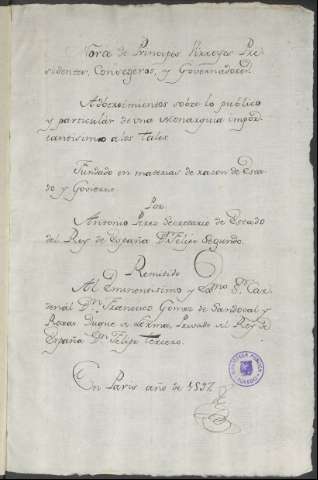 Norte de Principes Virreyes Pre
sidentes, Consegeros, y Governadores
Advertimientos sobre lo publico
y particular de una Monarquia impor
tantisimo a los tales
Fundado en materias de razon de Esta-
do y Govierno
Por
Antonio Perez Secretario de Estado
del Rey de España Dn Felipe Segundo.
Remitido
Al Eminentisimo y Exmo Sr Car
denal Dn Francisco Gomez de Sandoval y
Roxas Duque de Lerma, Privado del Rey de
España Dn Felipe tercero.
En Paris año de
BIBLIOTECA PUBLICA